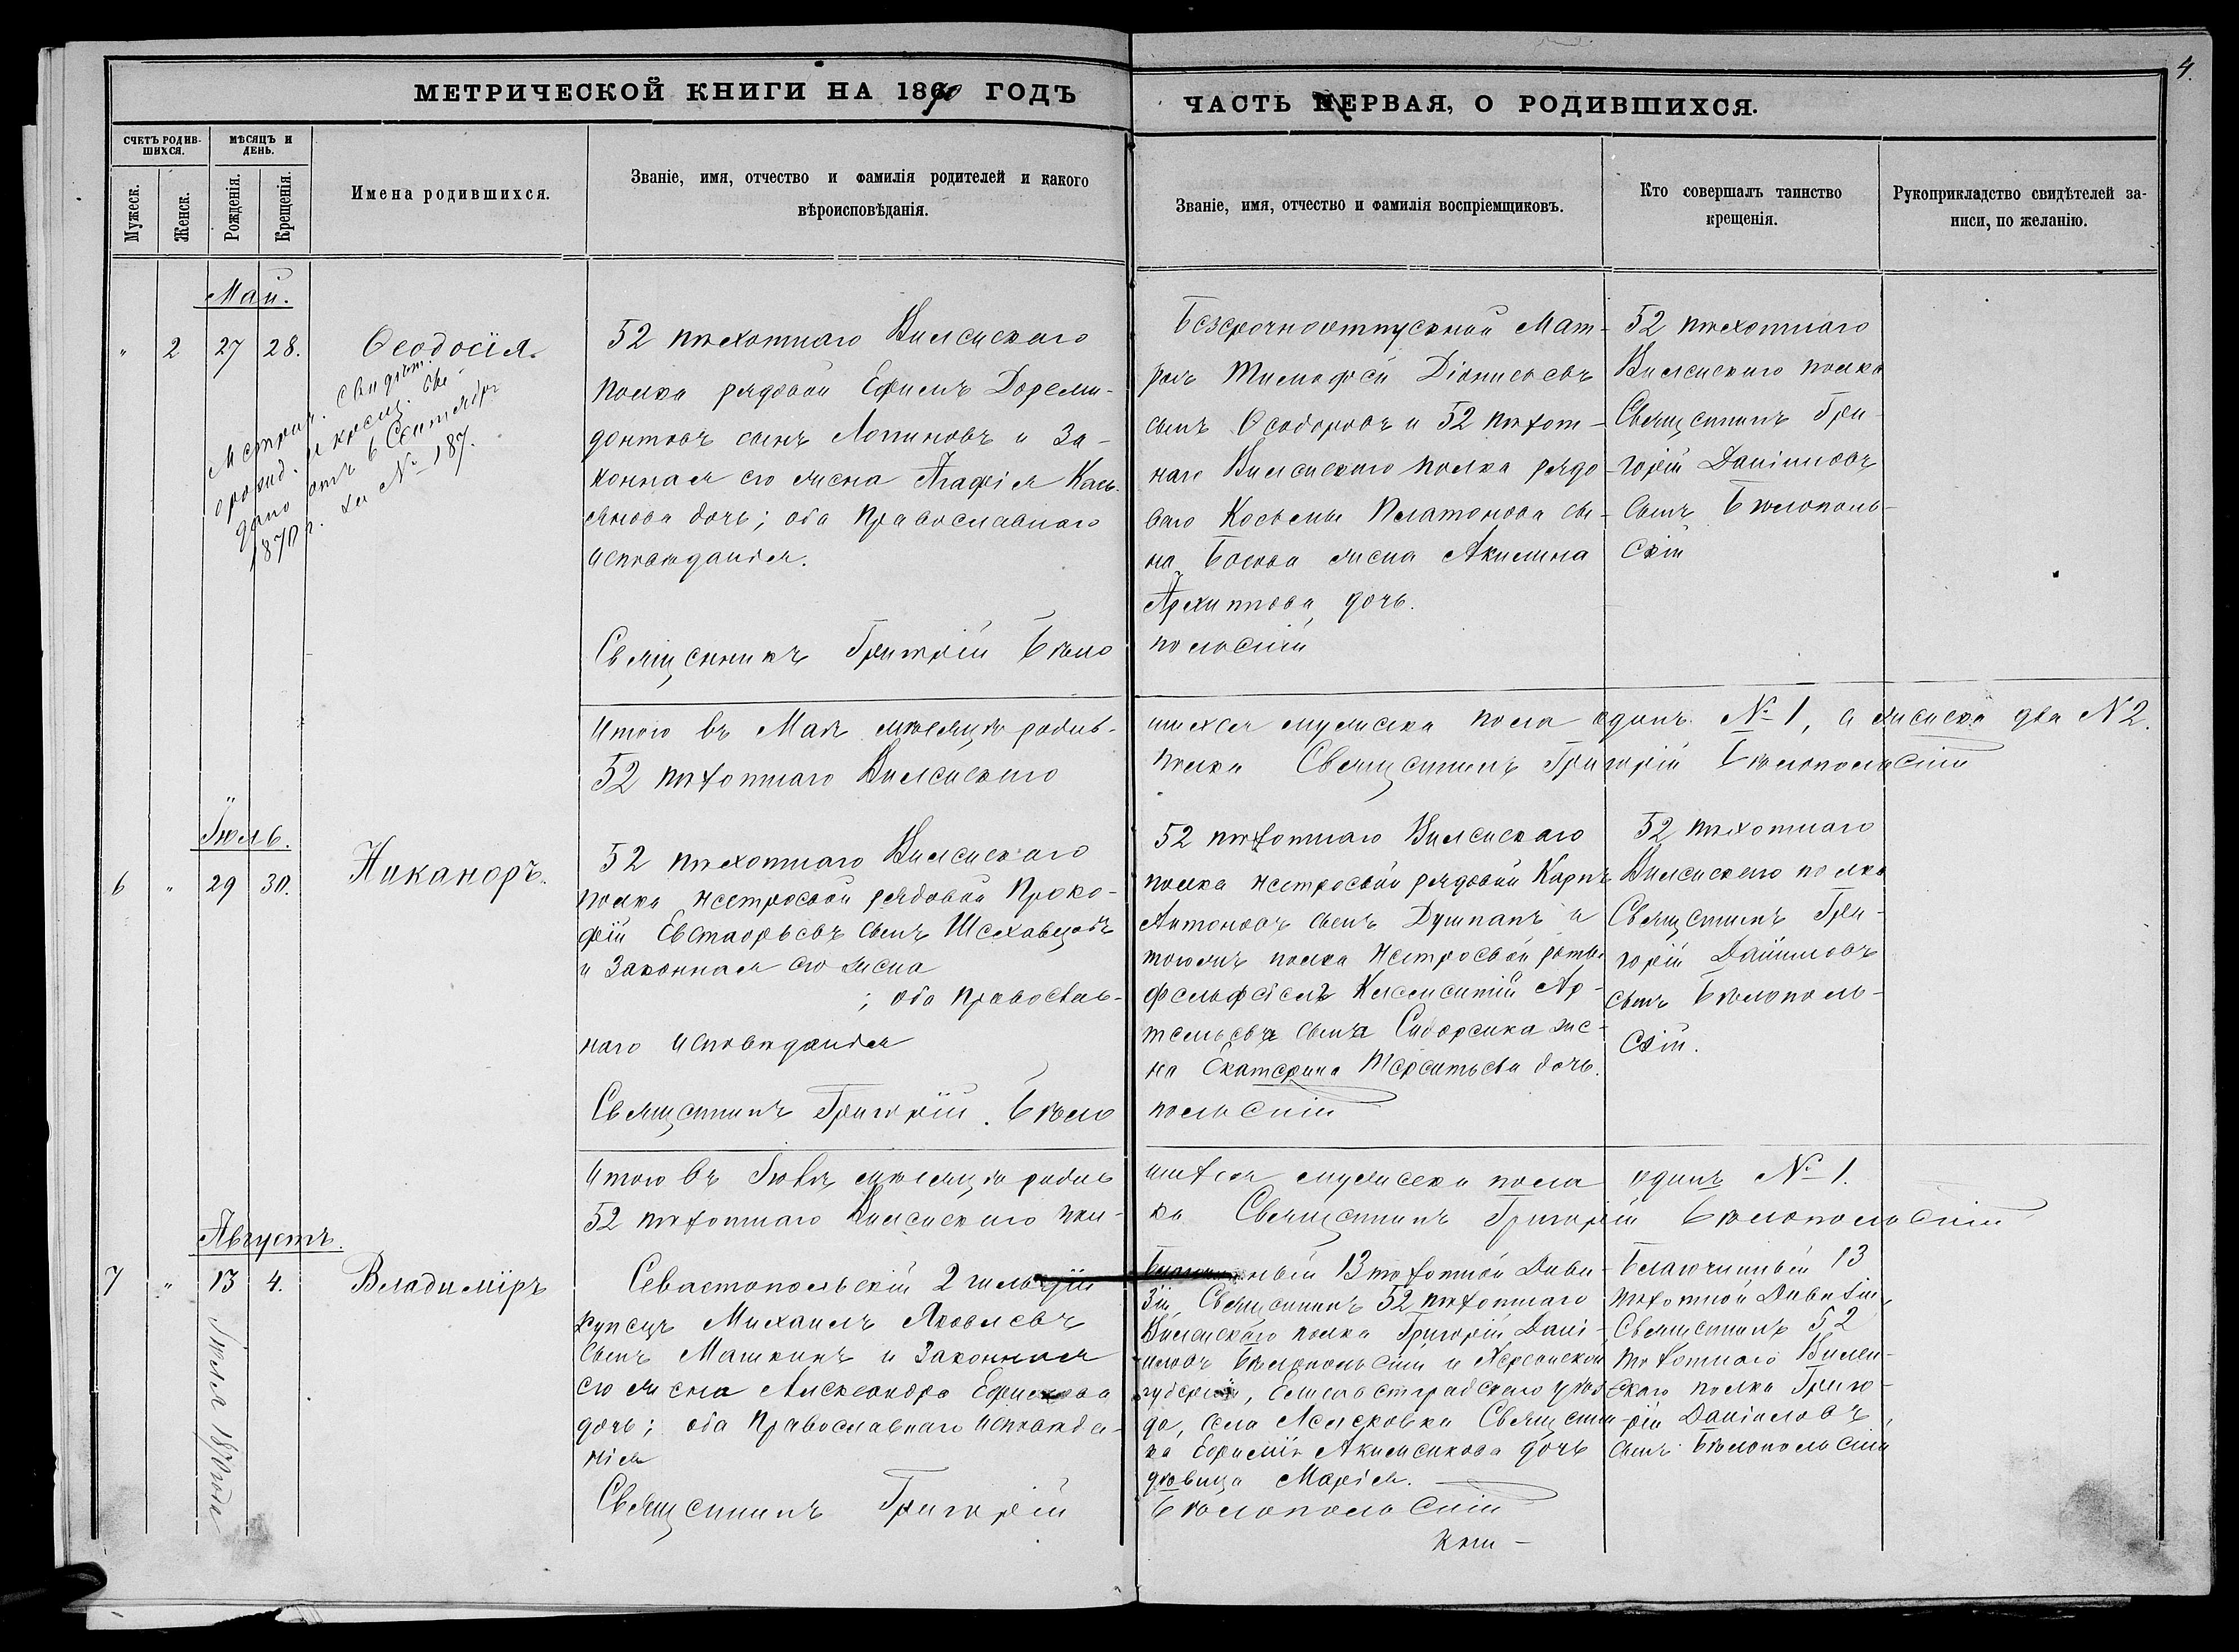 4.
МЕТРИЧЕСКОЙ КНИГИ НА 1870 ГОДЪ
ЧАСТЬ ПЕРВАЯ, О РОДИВШИХСЯ.
СЧЕТЪ РОДИВ-
ШИХСЯ.
МѢСЯЦЪ И
ДЕНЬ.
Мужеск.
Женск.
Рожденія.
Крещенія.
Имена родившихся.
Званіе, имя, отчество и фамилія родителей и какого
вѣроисповѣданія.
Званіе, имя, отчество и фамилія воспріемщиковъ.
Кто совершалъ таинство
крещенія.
Рукоприкладство свидѣтелей за-
писи, по желанію.
Май.
" 2 27 28.
Ѳеодосія.
Метрич. свидѣт.
о рожд. и крещ. ея
дано отъ 6 Сентября
1870 г. за № 187.
52 пѣхотнаго Виленскаго
полка рядовой Ефимъ Дореми-
донтовъ сынъ Логиновъ и За-
конная его жена Агафія Касъ-
янова дочь; оба Православнаго
исповѣданія.
Священникъ Григорій Бѣло
Безсрочноотпускной Мат-
росъ Тимофей Діонисьевъ
сынъ Ѳеодоровъ и 52 пѣхот-
наго Виленскаго полка рядо-
ваго Косьмы Платонова сы-
на Босова жена Акилина
Архиппова дочь.
польскій
52 пѣхотнаго
Виленскаго полка
Священникъ Гри-
горій Даніиловъ
сынъ Бѣлополь-
скій
Итого въ Маѣ мѣсяцѣ родив-
шихся мужеска пола одинъ № 1, а женска два № 2.
52 пѣхотнаго Виленскаго
полка Священникъ Григорій Бѣлопольскій
Іюль.
6 " 29 30.
Никаноръ.
52 пѣхотнаго Виленскаго
полка нестроевой рядовой Проко-
фій Евстафьевъ сынъ Шеховцовъ
и Законная его жена
; оба Православ-
наго исповѣданія
Священникъ Григорій Бѣло
52 пѣхотнаго Виленскаго
полка нестроевой рядовой Карпъ
Антоновъ сынъ Душпанъ и
тогожъ полка Нестроевой роты
фельдфебеля Климентій Ар-
темьева сына Сидоренка же-
на Екатерина Терентьева дочь.
польскій
52 пѣхотнаго
Виленскаго полка
Священникъ Гри-
горій Даніиловъ
сынъ Бѣлополь-
скій.
Итого въ Іюлѣ мѣсяцѣ родив
шихся мужеска пола одинъ № 1.
52 пѣхотнаго Виленскаго пол-
ка Священникъ Григорій Бѣлопольскій
Августъ.
7 " 13 4.
Іюля 1870 года
Владиміръ
Севастопольскій 2 гильдіи
купецъ Михаилъ Яковлевъ
сынъ Машкинъ и Законная
его жена Александра Ефимова
дочь; оба Православнаго исповѣда-
нія
Священникъ Григорій
13 пѣхотной Диви-
зіи, Священникъ 52 пѣхотнаго
Виленскаго полка Григорій Дані-
иловъ Бѣлопольскій и Херсонской
губерніи, Елисаветградскаго уѣз-
да, села Священни-
ка Ефимія дочь
дѣвица Марія.
Бѣлопольскій
Благочинный 13
пѣхотной Дивизіи,
Священникъ 52
пѣхотнаго Вилен-
скаго полка Григо-
рій Даніиловъ
сынъ Бѣлопольскій